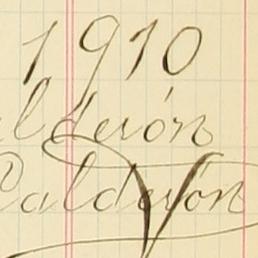 1910
alderón
Calderón